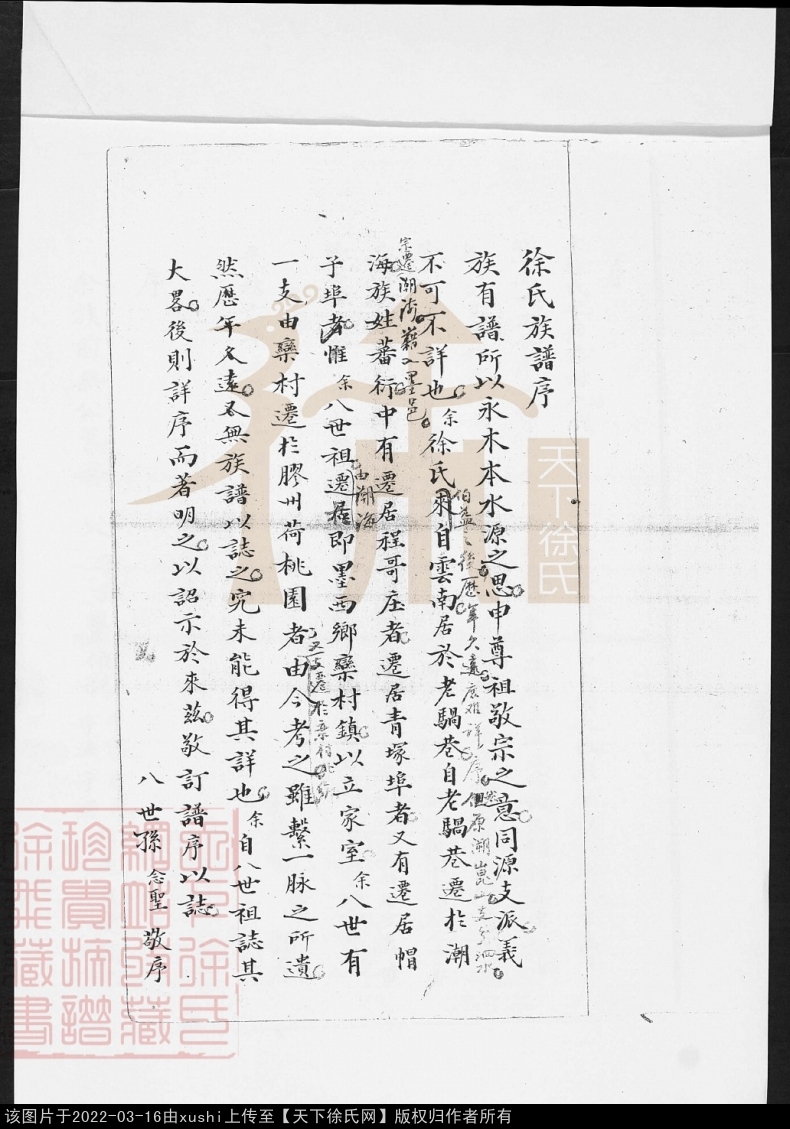 徐氏族譜序
族有譜所以永木本水源之思申尊祖敬宗之意同源支派義
不可不詳也余徐氏來自雲南居於老鴰巷自老鴰巷遷於潮
伯益之後歷年久遠序但原溯崑山泗水
宗遷潮海籍入墨邑
海族姓蕃衍中有遷居程哥庄者遷居青塚埠者又有遷居帽
子埠者惟余八世祖遷居即墨西鄉欒村鎮以立家室余八世有
由潮海
一支由欒村遷於膠州荷桃園者由今考之雖繫一脉之所遺
然歷年久遠無族譜以誌之究未能得其詳也余自八世祖誌其
大畧後則詳序而著明之以詔示於來茲敬訂譜序以誌
八世孫念聖敬序
天下徐氏
该图片于2022-03-16由xushi上传至【天下徐氏网】版权归作者所有